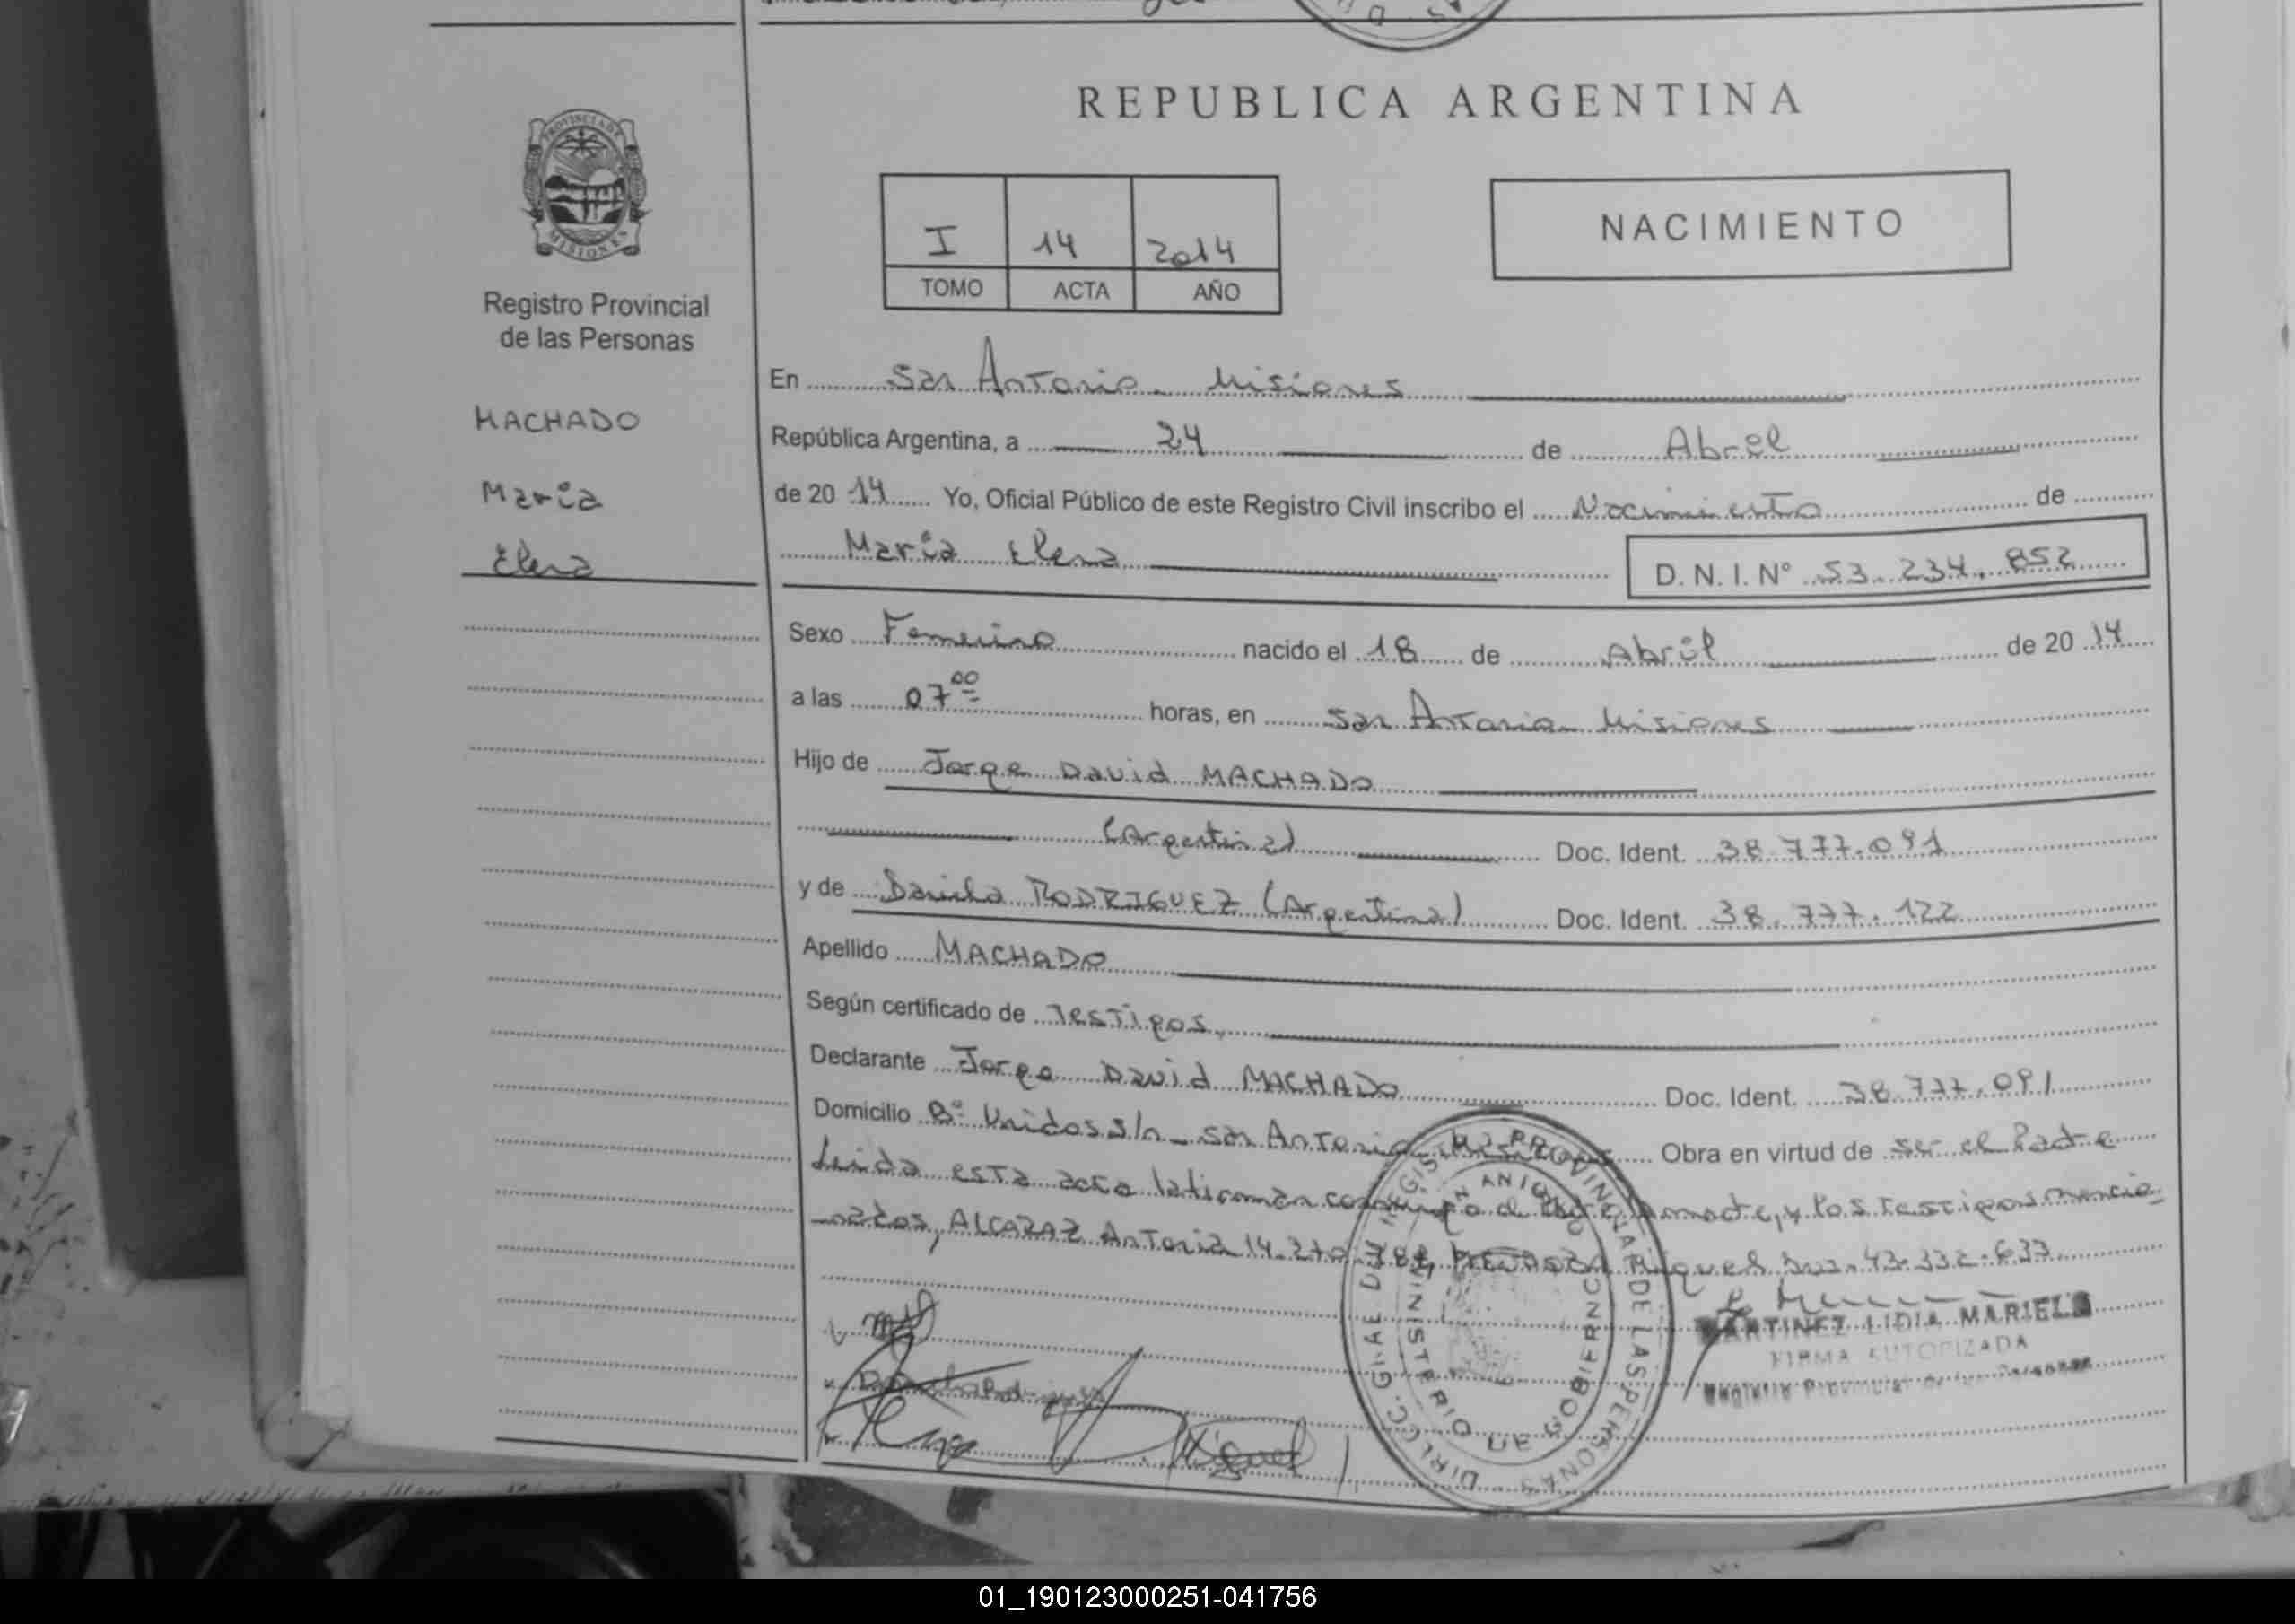 REPUBLICA ARGENTINA
PROVINCIA DE
MISIONES
Registro Provincial
de las Personas
MACHADO
Maria
Elena
I 14 2014
TOMO ACTA AÑO
NACIMIENTO
En San Antonio - Misiones
República Argentina, a 24 de Abril
de 20 14 Yo, Oficial Público de este Registro Civil inscribo el Nacimiento de
Maria Elena D. N. I. Nº 53.234.852
Sexo Femenino nacido el 18 de Abril de 20 14
a las 07 00 horas, en San Antonio - Misiones
Hijo de Jorge David MACHADO
(Argentina) Doc. Ident. 38.777.091
y de Daniela RODRIGUEZ (Argentina) Doc. Ident. 38.777.122
Apellido MACHADO
Según certificado de Testigos,
Declarante Jorge David MACHADO Doc. Ident. 38.777.091
Domicilio Bº Unidos s/n - San Antonio Misiones Obra en virtud de ser el Padre
Leida esta acta la firman conmigo el Padre, la madre, y los testigos mencio
nados, ALCARAZ Antonia 14.270. Miguel 43.332.637
MARTINEZ LIDIA MARIELA
FIRMA AUTORIZADA
Registro Provincial de las Personas
DIREC. GRAL DEL REGISTRO PROVINCIAL DE LAS PERSONAS
MINISTERIO DE GOBIERNO
SAN ANTONIO
Miguel
01_190123000251-041756